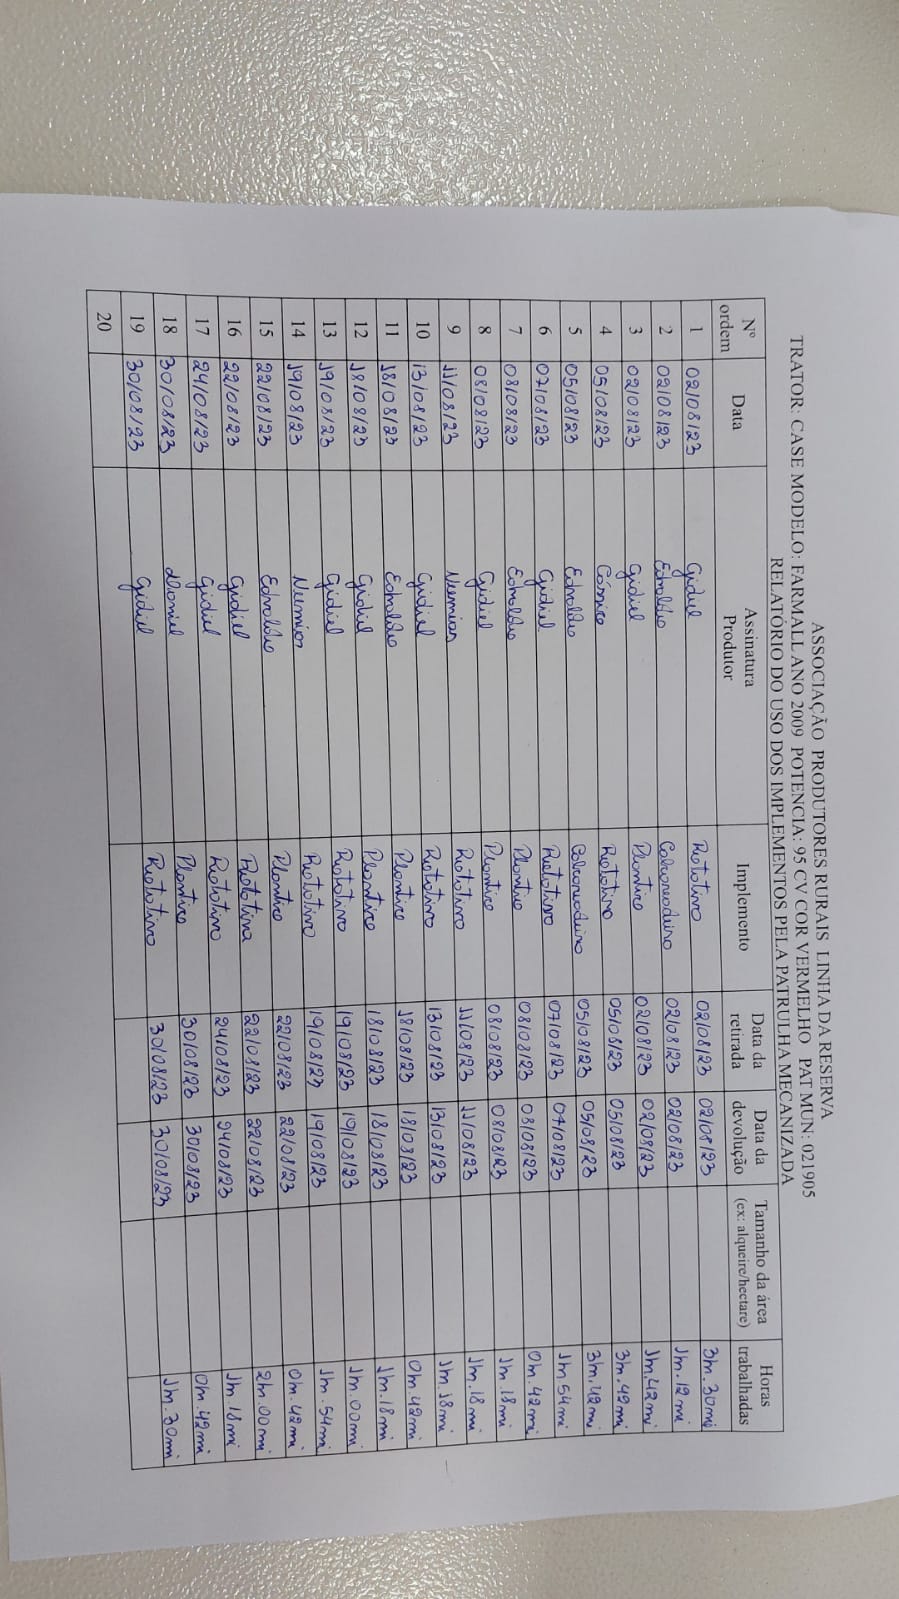 ASSOCIAÇÃO PRODUTORES RURAIS LINHA DA RESERVA
TRATOR: CASE MODELO: FARMALL ANO 2009 POTENCIA: 95 CV COR VERMELHO PAT MUN: 021905
RELATÓRIO DO USO DOS IMPLEMENTOS PELA PATRULHA MECANIZADA
Nº ordem Data Assinatura Produtor Implemento Data da retirada Data da devolução Tamanho da área (ex: alqueire/hectare) Horas trabalhadas
1 02/08/23 Gidiel Rototivo 02/08/23 02/08/23 3h.30mi
2 02/08/23 Ednaldo 02/08/23 02/08/23 1h.12mi
3 02/08/23 Gidiel Plantio 02/08/23 02/08/23 1h.42mi
4 05/08/23 Rototivo 05/08/23 05/08/23 3h.42mi
5 05/08/23 Ednaldo 05/08/23 05/08/23 3h.42mi
6 07/08/23 Gidiel Rototivo 07/08/23 07/08/23 1h54mi
7 08/08/23 Ednaldo Plantio 08/08/23 08/08/23 0h.42mi
8 08/08/23 Gidiel Plantio 08/08/23 08/08/23 1h.18mi
9 11/08/23 Neemias Rototivo 11/08/23 11/08/23 1h.18mi
10 13/08/23 Gidiel Rototivo 13/08/23 13/08/23 1h.18mi
11 18/08/23 Ednaldo Plantio 18/08/23 18/08/23 0h.42mi
12 18/08/23 Gidiel Plantio 18/08/23 18/08/23 1h.18mi
13 19/08/23 Gidiel Rototivo 19/08/23 19/08/23 1h.00mi
14 19/08/23 Neemias Rototivo 19/08/23 19/08/23 1h54mi
15 22/08/23 Ednaldo Plantio 22/08/23 22/08/23 0h.42mi
16 22/08/23 Gidiel Rototiva 22/08/23 22/08/23 2h.00mi
17 24/08/23 Gidiel Rototivo 24/08/23 24/08/23 1h.18mi
18 30/08/23 Plantio 30/08/23 30/08/23 0h.42mi
19 30/08/23 Gidiel Rototivo 30/08/23 30/08/23 1h.30mi
20